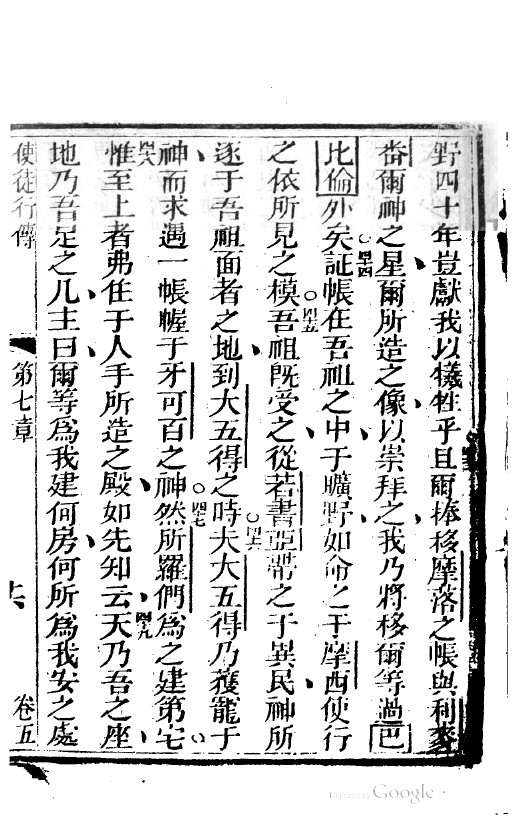 野四十年豈獻我以犧牲乎且爾捧移摩落之帳與利
番爾神之星爾所造之像以崇拜之我乃將移爾等過巴
比倫外矣○四四証帳在吾祖之中于曠野如命之于摩西使行
之依所見之模○四五吾祖既受之從若書亞帶之于異民神所
逐于吾祖面者之地到大五得之時○四六夫大五得乃獲寵于
神而求遇一帳幄于牙可百之神○四七然所羅們為之建第宅○
四八惟至上者弗住于人手所造之殿如先知云○四九天乃吾之座
地乃吾足之几主曰爾等為我建何房何所為我安之處
使徒行傳 第七章 卷五
Digitized by Google